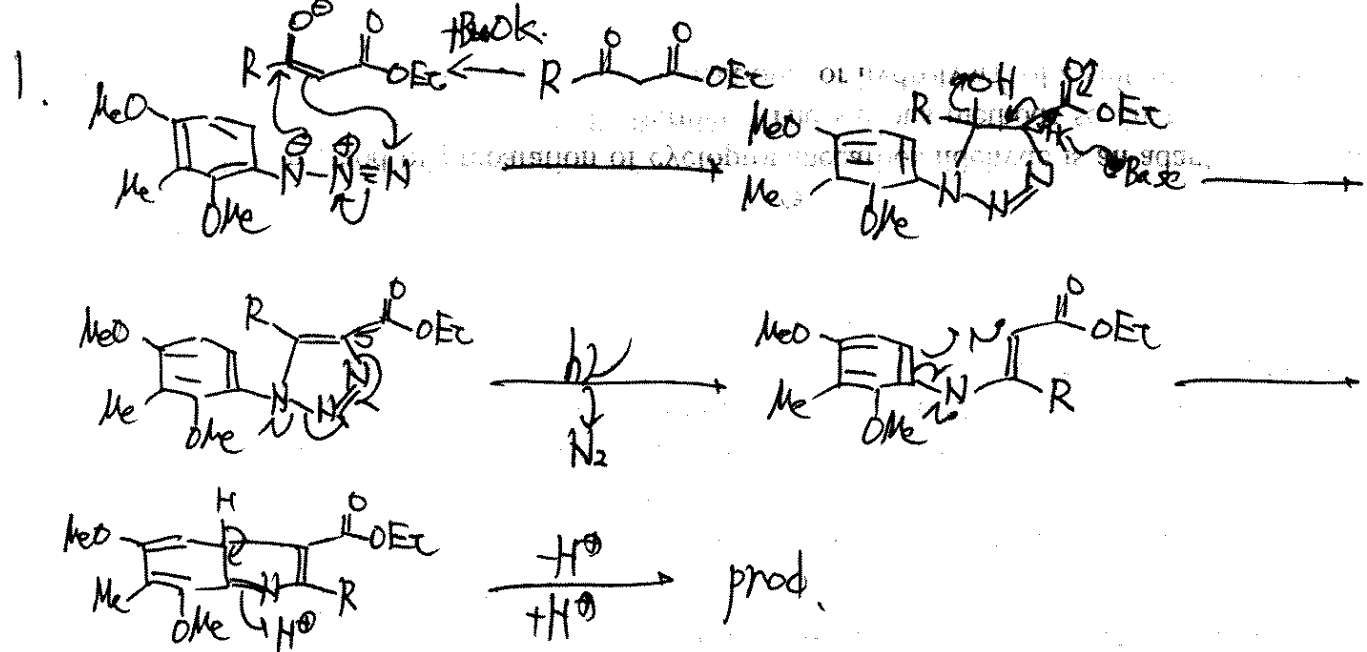 1.
O⊖ O
R OEt
tBuOK.
O O
R OEt
MeO
Me
OMe
⊖ ⊕
N-N≡N
OH O
R OEt
MeO
Me
OMe
N N=N
H
Base
R O
OEt
MeO
Me
OMe
N N=N
hν
N₂
MeO
Me
OMe
N
N
O
OEt
R
H
MeO
Me
OMe
N
O
OEt
R
H⊕
-H⊕
+H⊕
prod.